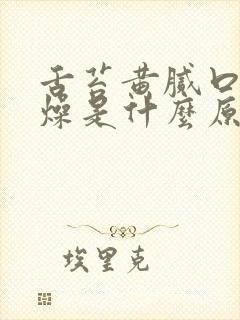 舌苔黄腻口
燥是什麼原
埃里克